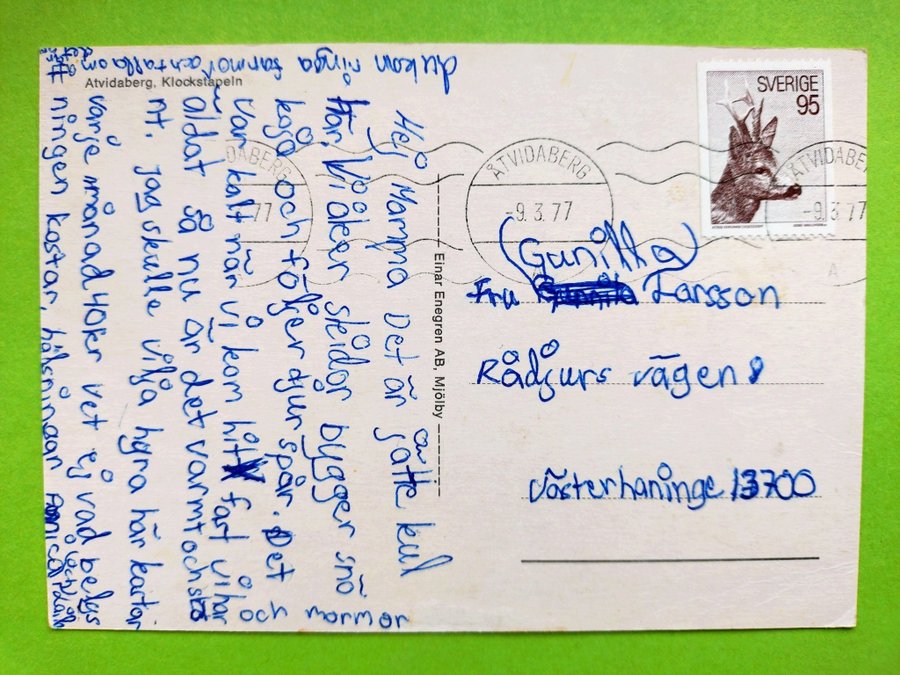 Åtvidaberg, Klockstapeln
du kan ringa farmor och tala om
det är
Hej Mamma Det är jätte kul
här. Vi åker skidor bygger snö
koja och följer djur spår. Det
var kallt när vi kom hit fast vi har
äldat så nu är det varmt och
nt. Jag skulle vilja hyra här kartor
varje månad 40kr vet ej vad belys
ningen kostar, hälsningar
och mormor
Einar Enegren AB, Mjölby
SVERIGE
95
ÅTVIDABERG
-9.3.77
ÅTVIDABERG
-9.3.77
DABERG
77
A
(Gunilla)
Fru Larsson
Rådjurs vägen 8
västerhaninge 13700